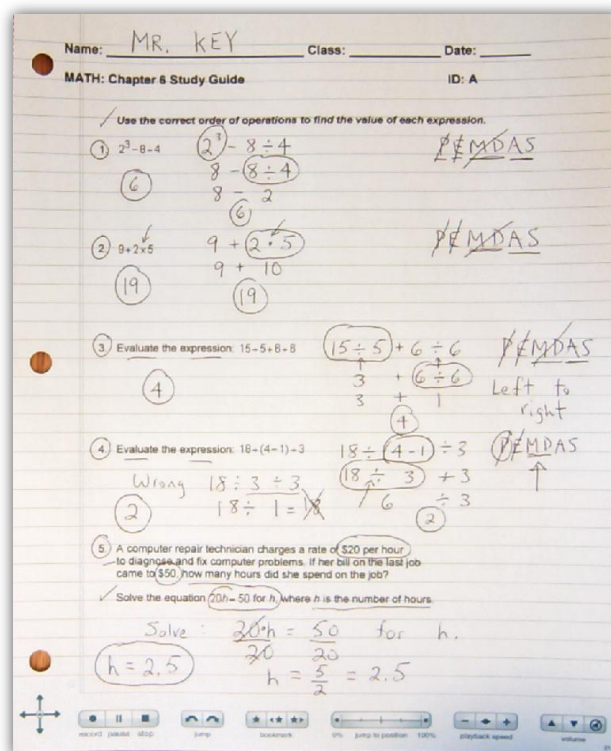 Name: MR. KEY Class: Date:
MATH: Chapter 6 Study Guide ID: A
Use the correct order of operations to find the value of each expression.
1. 2³-8÷4 2³ - 8 ÷ 4 PEMDAS
8 - 8 ÷ 4
6 8 - 2
6
2. 9+2x5 9 + 2 · 5 PEMDAS
9 + 10
19 19
3. Evaluate the expression: 15÷5+6÷6 15 ÷ 5 + 6 ÷ 6 PEMDAS
3 + 6 ÷ 6 Left to
4 3 + 1 right
4
4. Evaluate the expression: 18÷(4-1)÷3 18 ÷ (4-1) ÷ 3 PEMDAS
Wrong 18 ÷ 3 ÷ 3 18 ÷ 3 ÷ 3
2 18 ÷ 1 = 18 6 ÷ 3
2
5. A computer repair technician charges a rate of $20 per hour
to diagnose and fix computer problems. If her bill on the last job
came to $50, how many hours did she spend on the job?
Solve the equation 20h = 50 for h, where h is the number of hours.
Solve: 20·h = 50 for h.
20 20
h = 2.5 h = 5/2 = 2.5
record pause stop jump bookmark 0% jump to position 100% playback speed volume